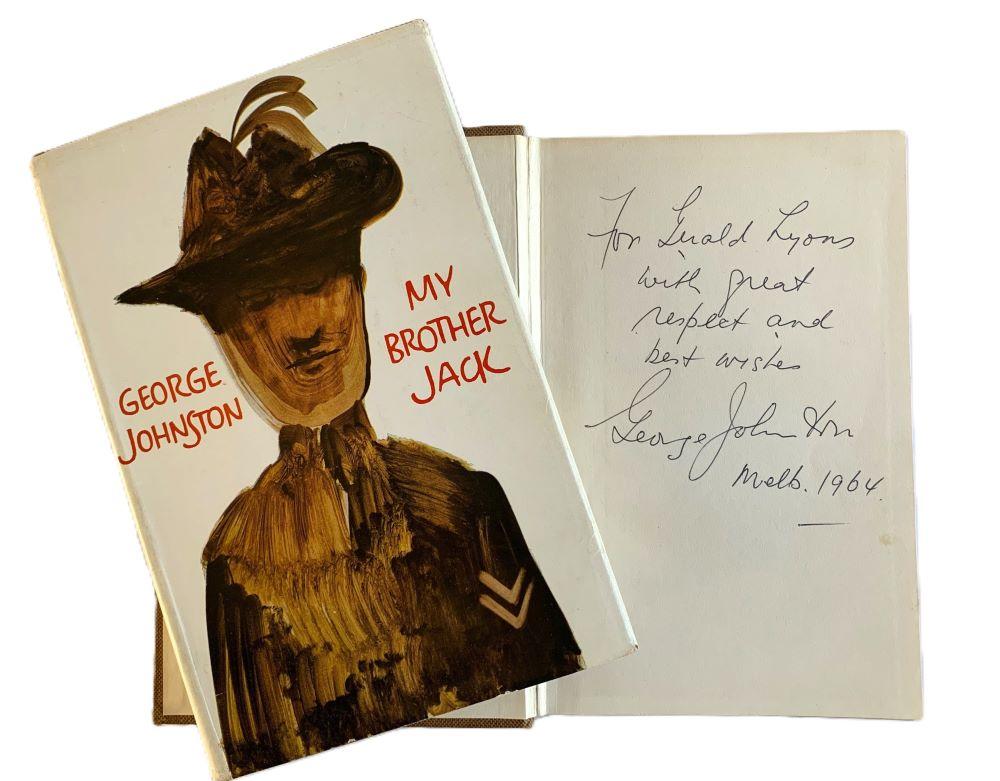 GEORGE
JOHNSTON
MY
BROTHER
JACK
For Gerald Lyons
with great
respect and
best wishes
George Johnston
Melb. 1964.